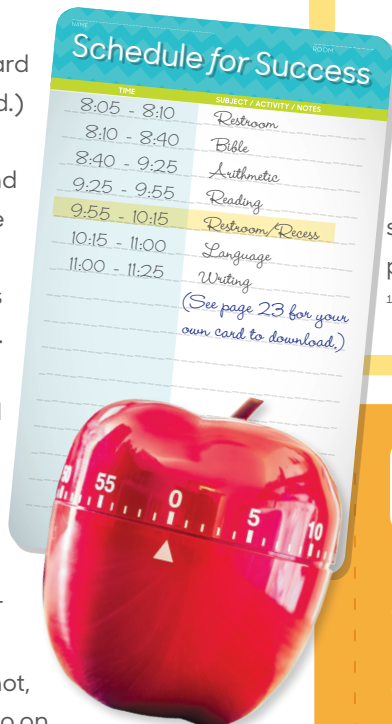 ard
NAME
ROOM
Schedule for Success
d.)
TIME SUBJECT / ACTIVITY / NOTES
8:05 - 8:10 Restroom
8:10 - 8:40 Bible
nd
8:40 - 9:25 Arithmetic
e
9:25 - 9:55 Reading
9:55 - 10:15 Restroom/Recess
s
10:15 - 11:00 Language
p
11:00 - 11:25 Writing
s
1
(See page 23 for your
own card to download.)
.
55 0 5 10
not,
o on